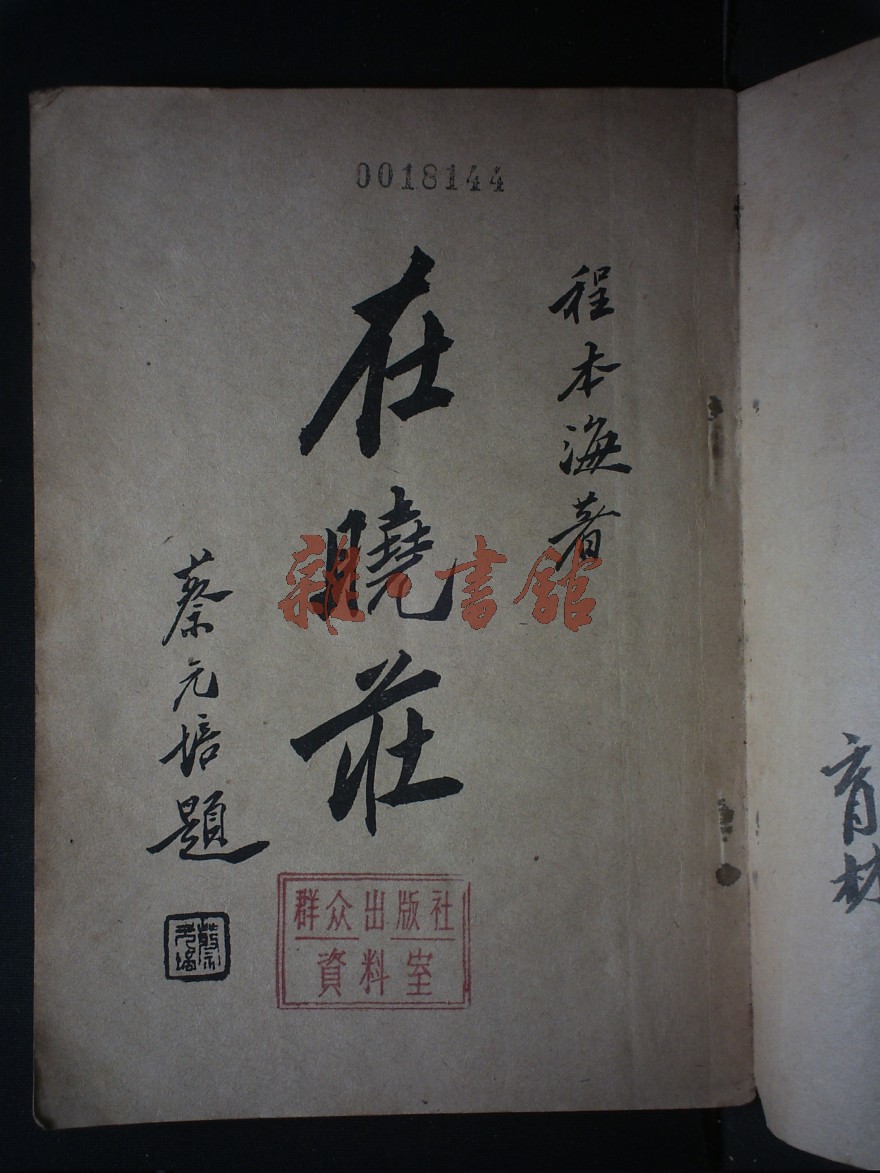 0018144
程本海著
在曉莊
蔡元培題
蔡元培
群众出版社
資料室
雜·書館
育材